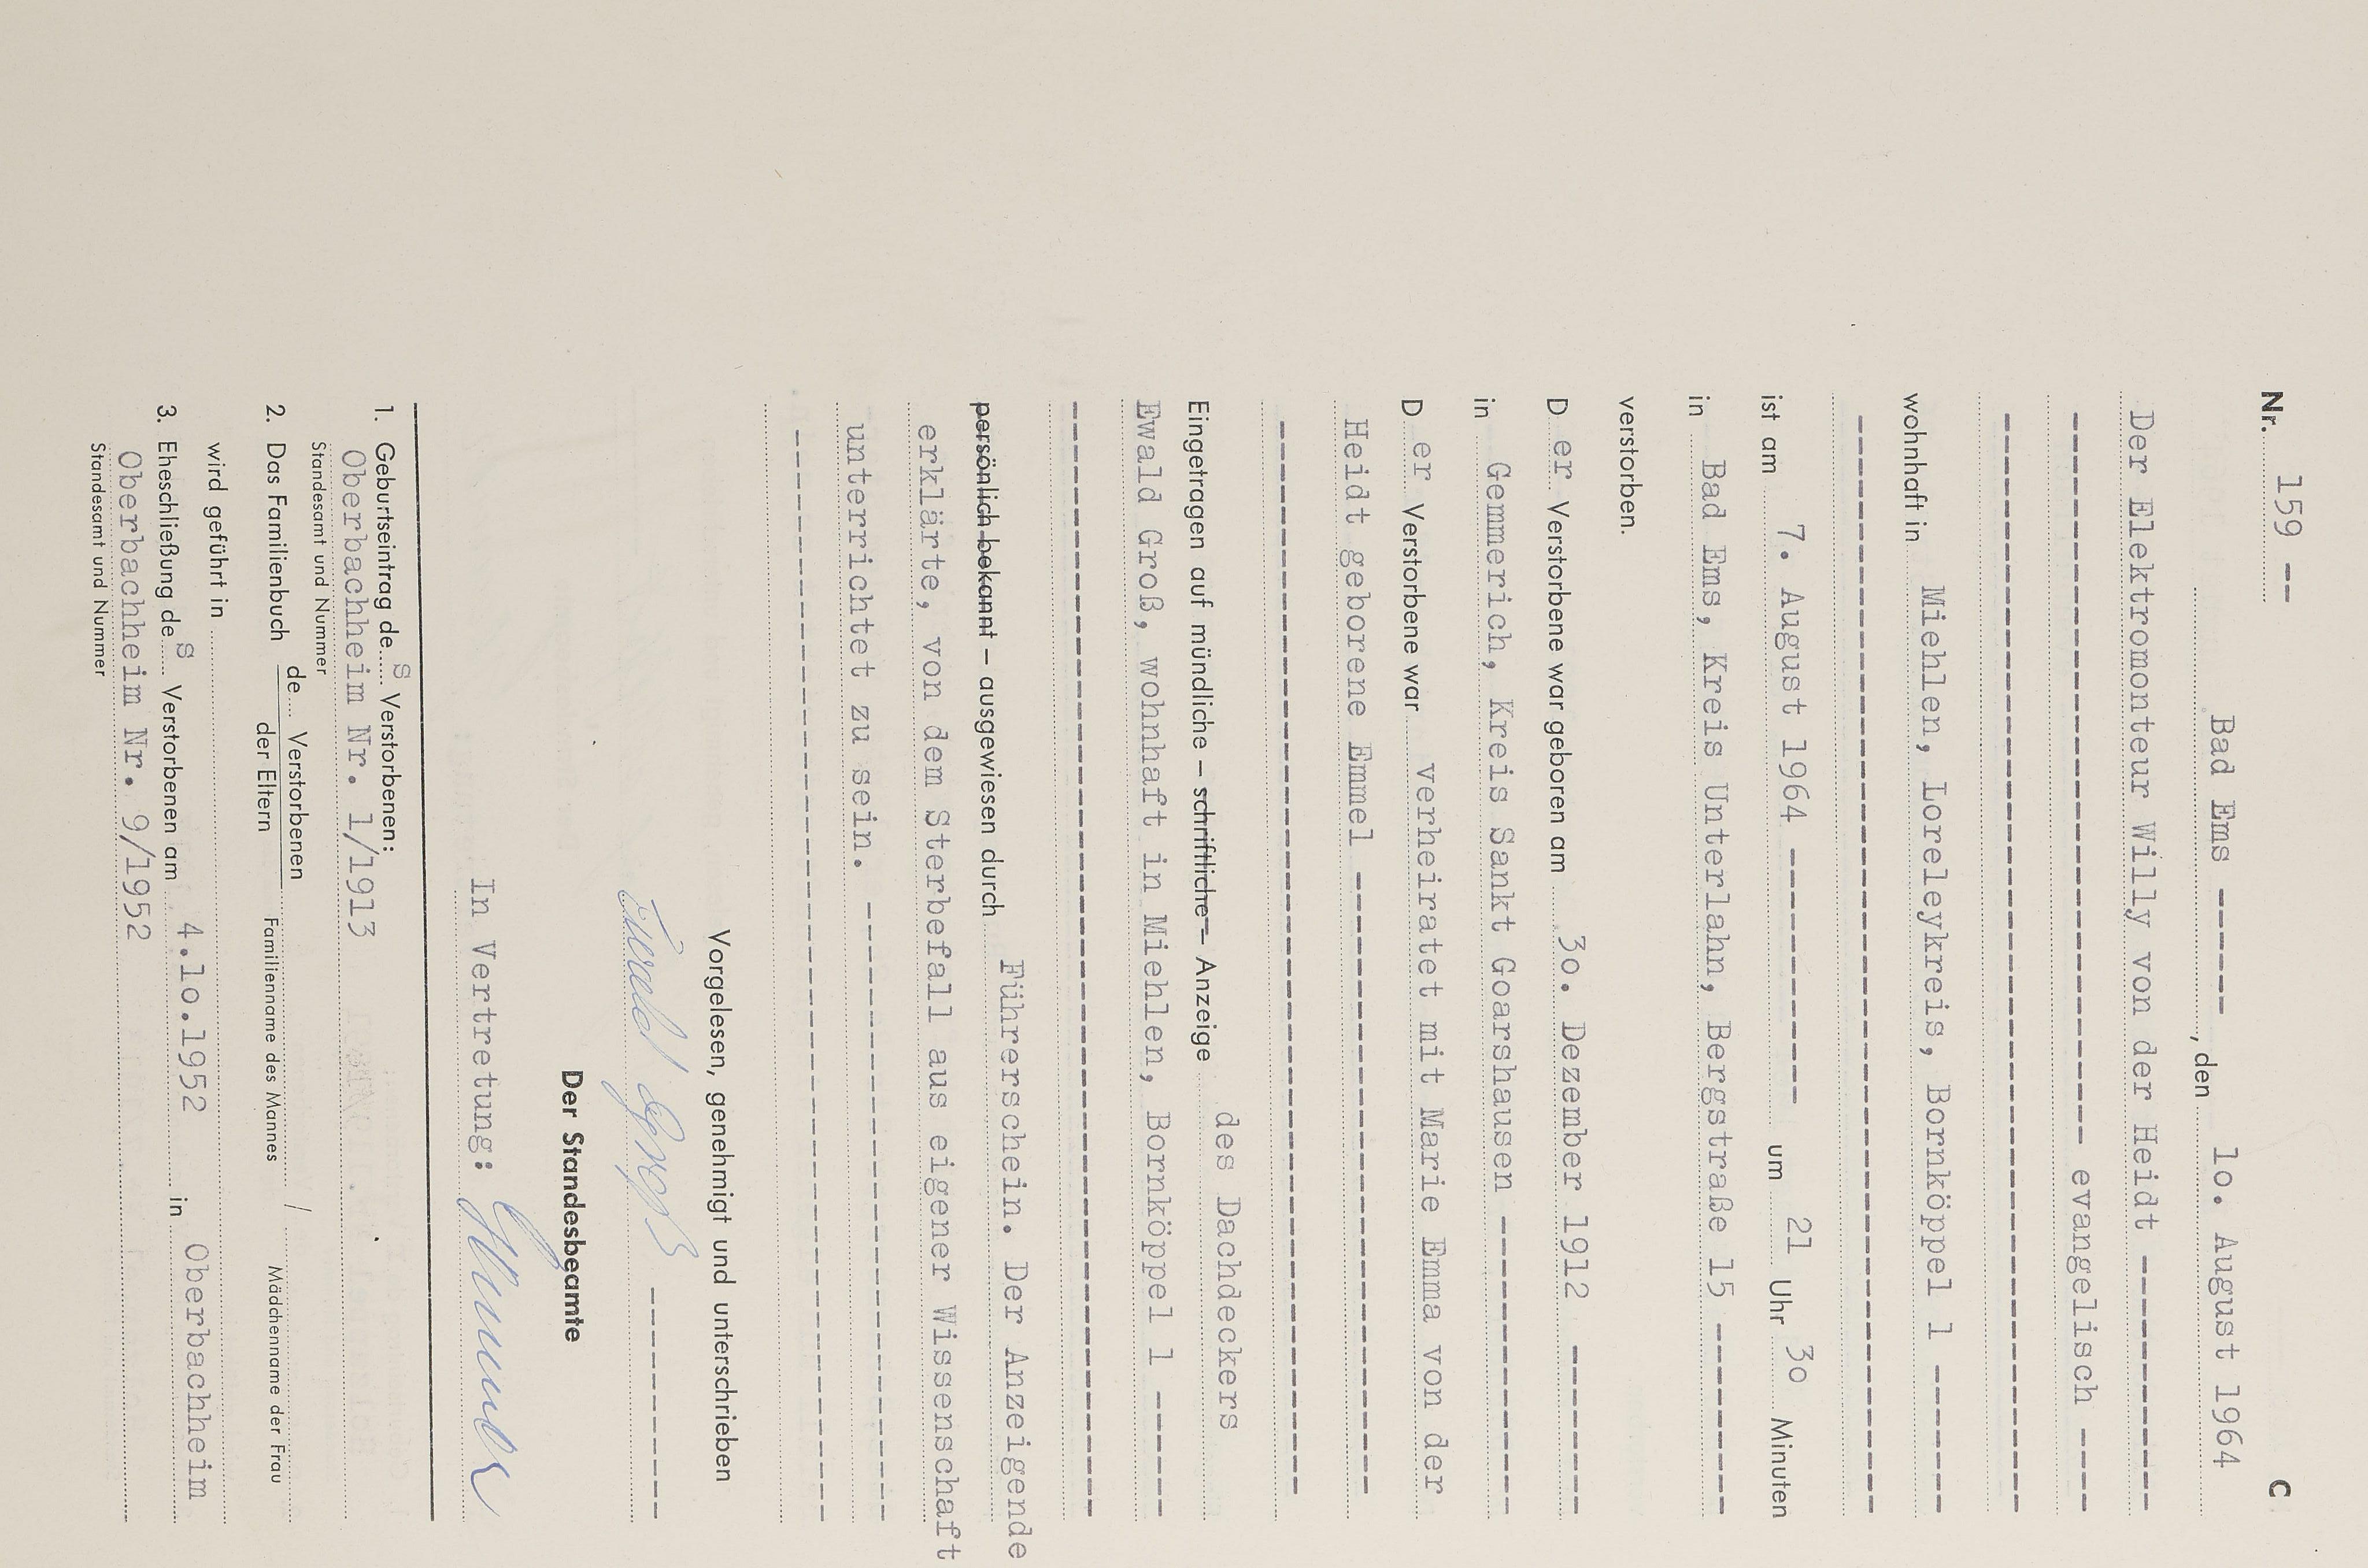 Nr. 159 -- C
Bad Ems ------, den 1o. August 1964
Der Elektromonteur Willy von der Heidt ----------
----------------------------- evangelisch ----
wohnhaft in Miehlen, Loreleykreis, Bornköppel 1 ------
ist am 7. August 1964 ---------- um 21 Uhr 3o Minuten
in Bad Ems, Kreis Unterlahn, Bergstraße 15 --------
verstorben.
D er Verstorbene war geboren am 3o. Dezember 1912 -------
in Gemmerich, Kreis Sankt Goarshausen ------------
D er Verstorbene war verheiratet mit Marie Emma von der
Heidt geborene Emmel -------------------------
Eingetragen auf mündliche – schriftliche – Anzeige des Dachdeckers
Ewald Groß, wohnhaft in Miehlen, Bornköppel 1 ------
persönlich bekannt – ausgewiesen durch Führerschein. Der Anzeigende
erklärte, von dem Sterbefall aus eigener Wissenschaft
unterrichtet zu sein. -------------------------
Vorgelesen, genehmigt und unterschrieben
Ewald Groß ----------
Der Standesbeamte
In Vertretung:
1. Geburtseintrag de s Verstorbenen:
Oberbachheim Nr. 1/1913
Standesamt und Nummer
2. Das Familienbuch de Verstorbenen / der Eltern
Familienname des Mannes / Mädchenname der Frau
wird geführt in
3. Eheschließung de s Verstorbenen am 4.1o.1952 in Oberbachheim
Oberbachheim Nr. 9/1952
Standesamt und Nummer